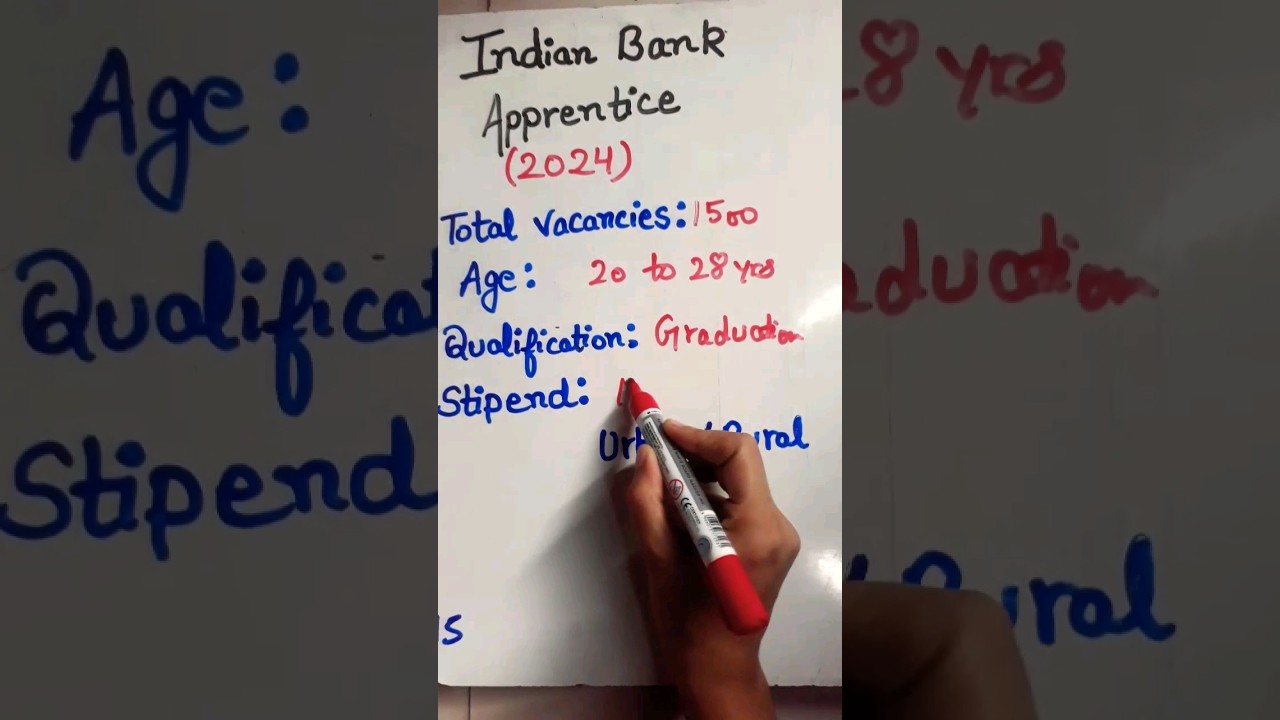 Indian Bank
Apprentice
(2024)
Total Vacancies: 1500
Age: 20 to 28 yrs
Qualification: Graduation
Stipend:
Rural